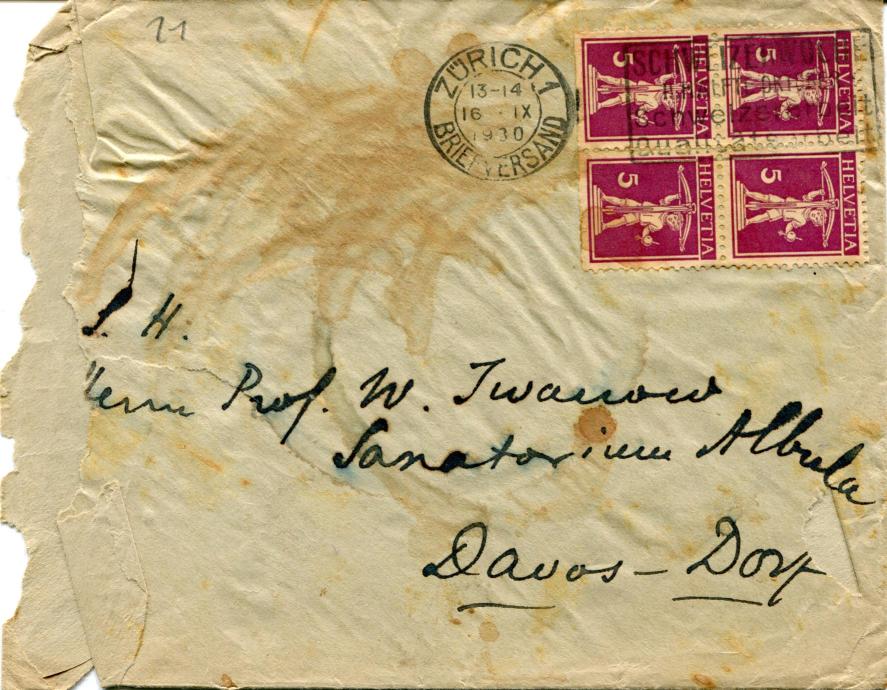 21
ZÜRICH 1
13-14
16 · IX
1930
BRIEFVERSAND
5 HELVETIA
5 HELVETIA
5 HELVETIA
5 HELVETIA
S. H.
Herrn Prof. W. Iwanow
Sanatorium Albula
Davos – Dorf